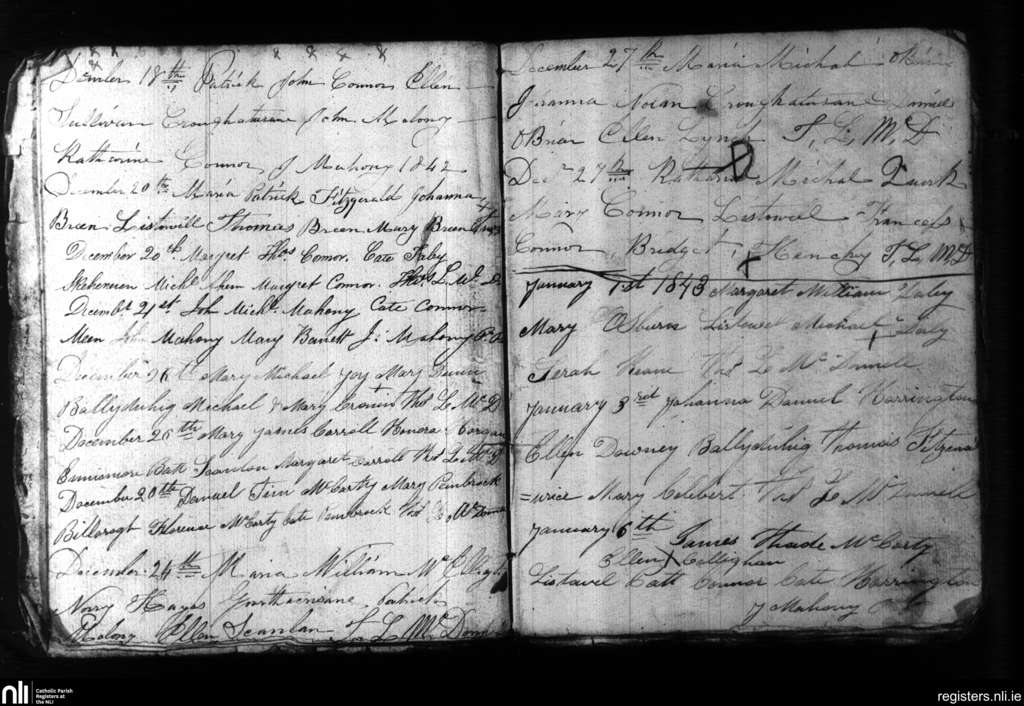 December 18th Patrick John Connor Ellen
Sullivan Croughatarsane John Malony
Katharine Connor J Mahony 1842
December 20th Maria Patrick Fitzgerald Johanna
Breen Listowill Thomas Breen Mary Breen
December 20th Margret Thos Connor Cate
Michl Ahern Margret Connor Thos L Mc D
Decembr 21st John Michl Mahony Cate Connor
Meen John Mahony Mary Barrett J: Mahony
December 26th Mary Michael Joy Mary Quinn
Ballyduhig Michael & Mary Cronin Thos Le Mc D
December 26th Mary James Carroll Honora
Ennismore Batt Scanlon Margaret Carroll Thos Le Mc D
December 20th Daniel Tim McCarty Mary Pembrock
Billorogh Florence McCarty Cate Pembrock Thos Le
December 24th Maria William McElligott
Nory Hayes Patrick
Ellen Scanlan T L McDonn
December 27th Maria Michal OBrien
Johanna Nolan Croughatarsane Daniel
OBrien Ellen Lynch T, L, Mc, D
Decr 27th Katharine Michal Quirk
Mary Connor Listowell Francis
Connor Bridget Henchy T, L, McD
January 1st 1843 Margaret William Daly
Mary Osburn Listowel Michael Daly
Serah Keane Thos Le McDonnell
January 3rd Johanna Daniel Harrington
Ellen Downey Ballyduhig Thomas Fitzma
=urice Mary Thos Le McDonnell
January 6th James Thade McCarty
Ellen Callighan
Listowel Cate Connor Cate Harrington
J Mahony
nli
Catholic Parish
Registers at
the NLI
registers.nli.ie